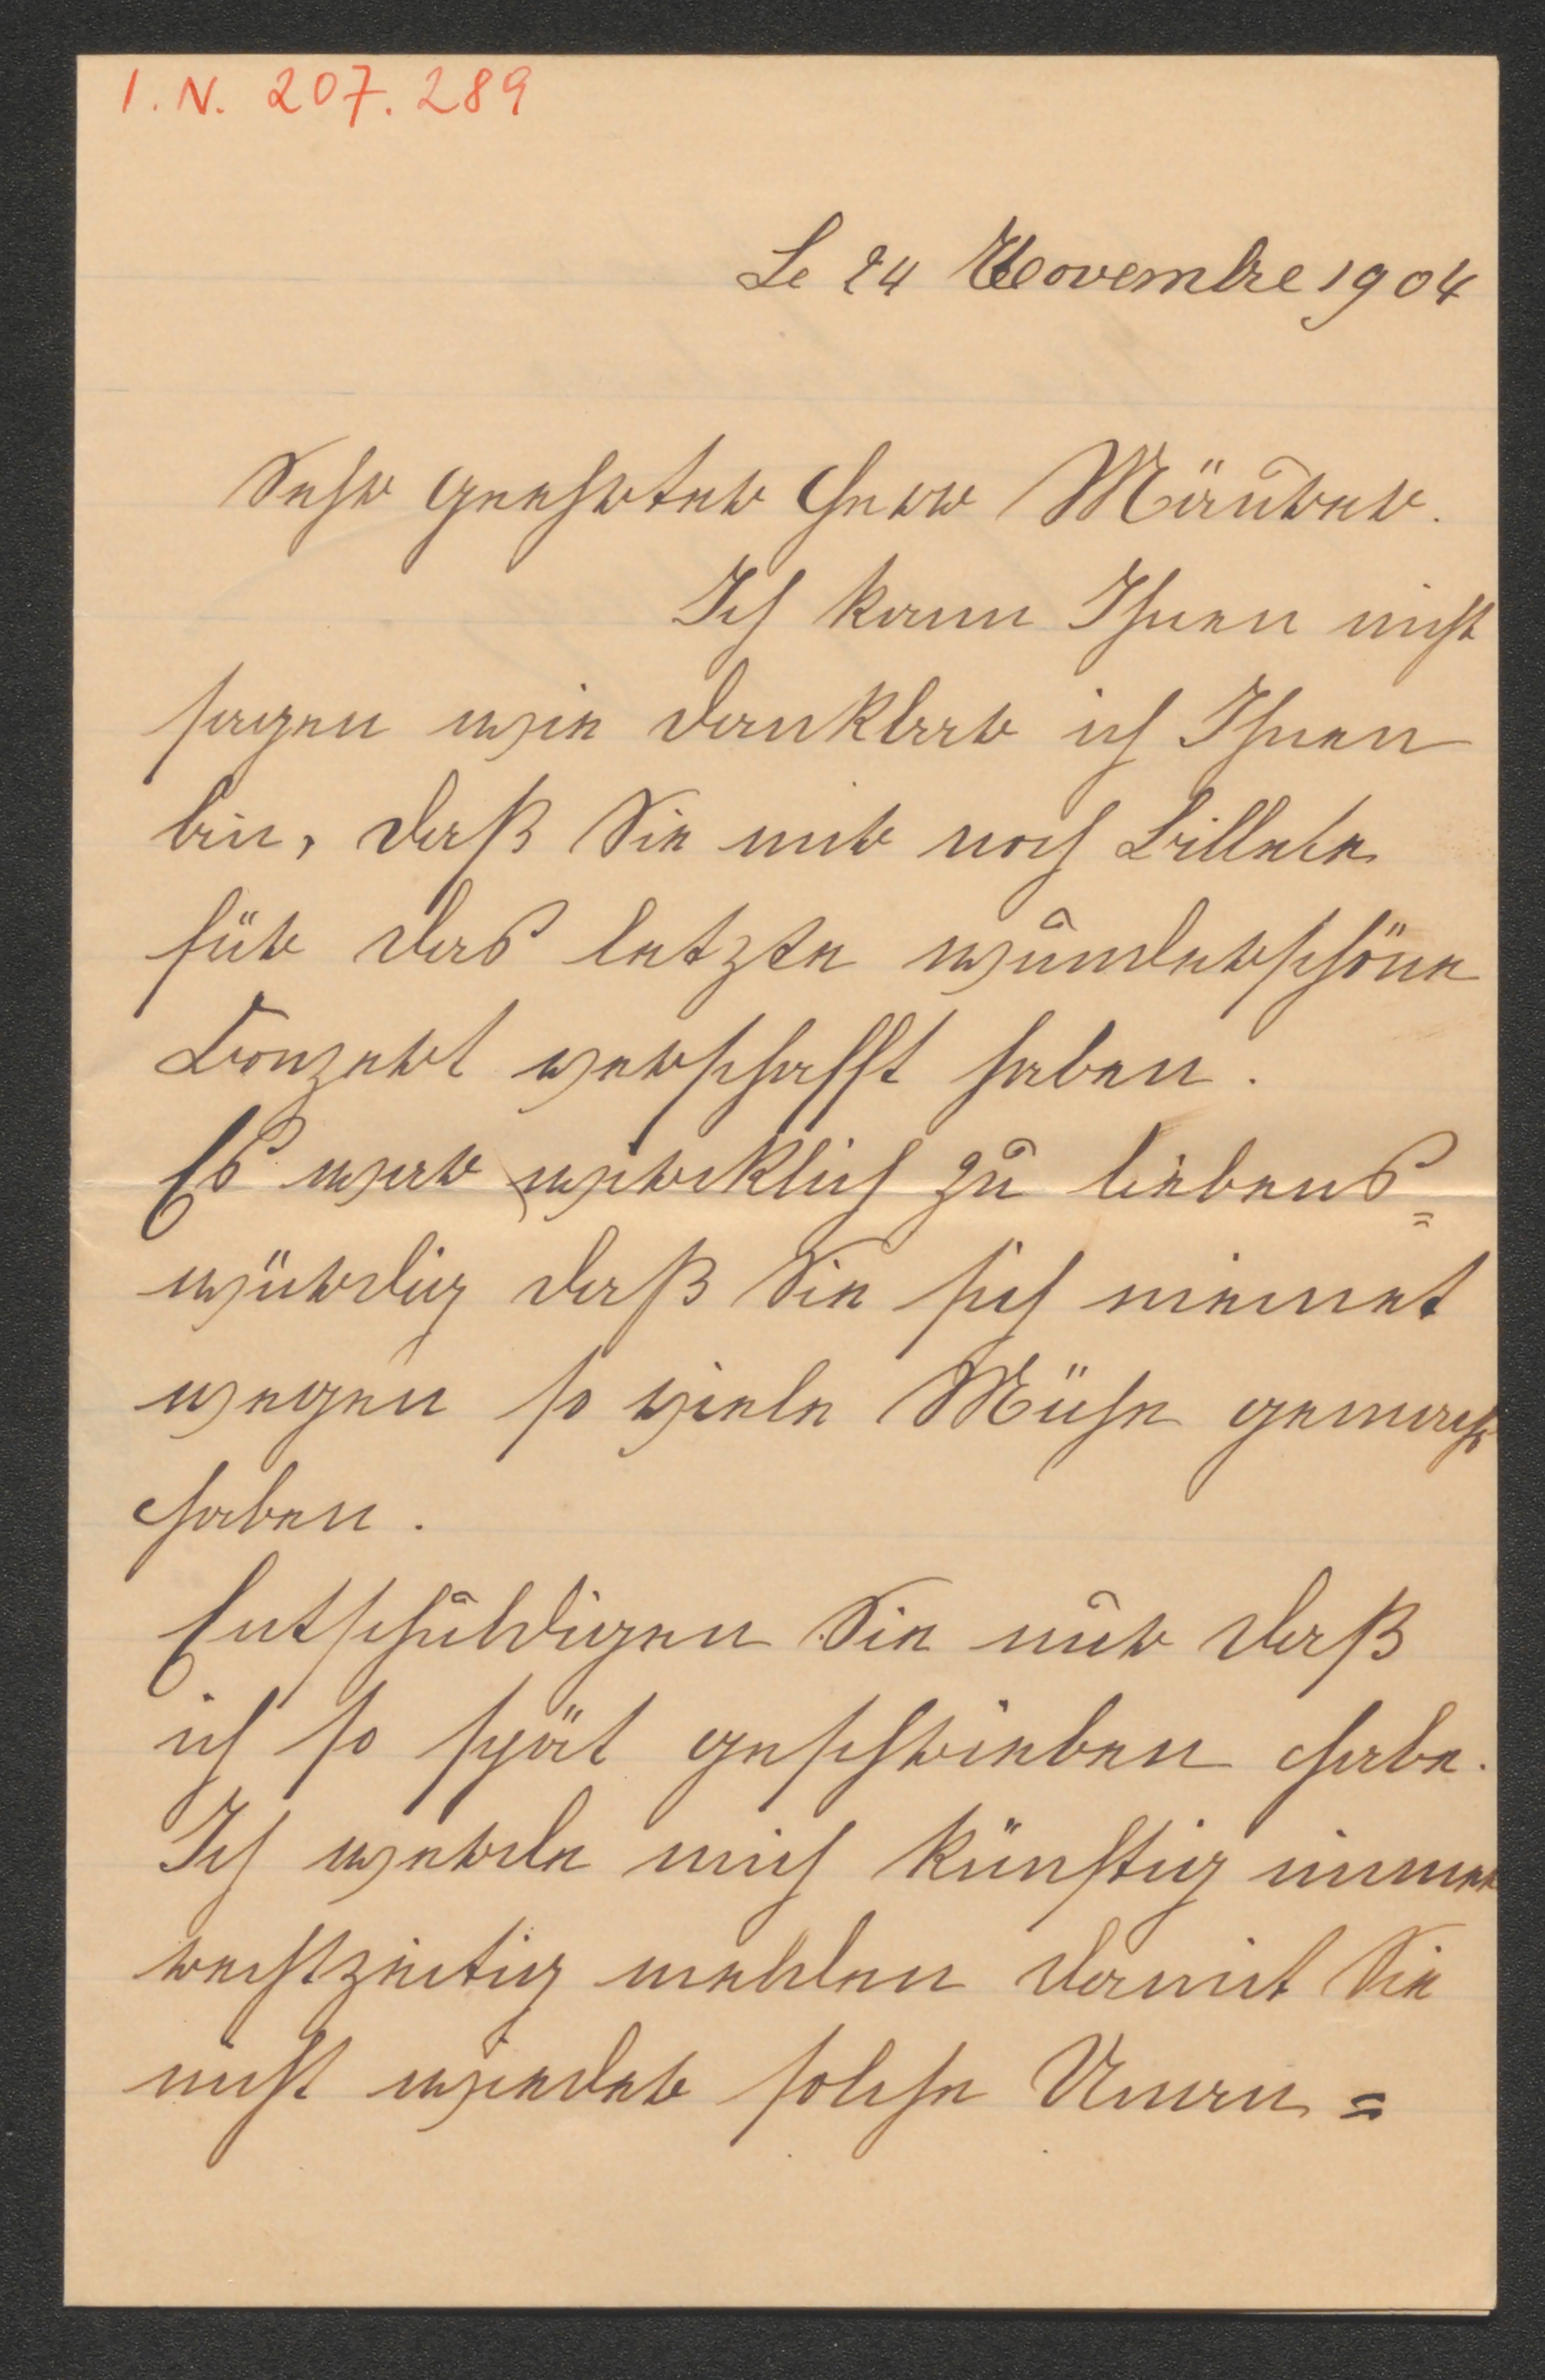 I. N. 207.289
Le 24 Novembre 1904
Sehr geehrter Herr Mäurer.
Ich kann Ihnen nicht
sagen wie dankbar ich Ihnen
bin, daß Sie mir noch Billete
für das letzte wunderschöne
Conzert verschafft haben.
Es war wirklich zu liebens=
würdig daß Sie sich meinet
wegen so viele Mühe gemacht
haben.
Entschuldigen Sie nur daß
ich so spät geschrieben habe.
Ich werde mich künftig immer
rechtzeitig melden damit Sie
nicht wieder solche Unan=